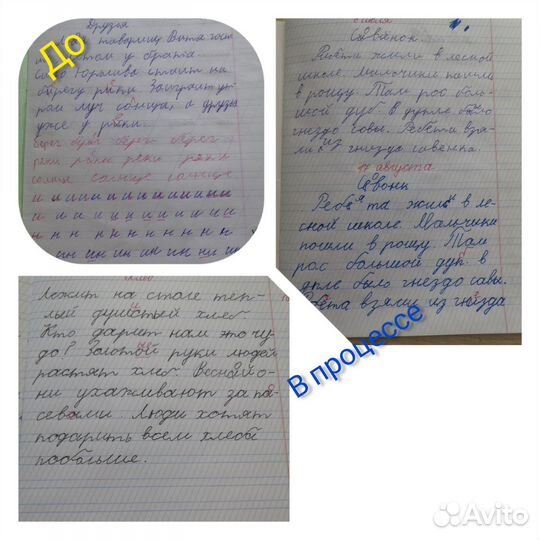 До
Друзья
товарищ Витя гост
том у брата
Село Юрьево стоит на
берегу реки. Заиграит ут
рам луч солнца, а друзья
уже у реки.
берег берег берег
реки реки реки реки
солнце солнце солнце
и и и и и и и и и и и и
и и и и и и и и и
и н н н н н н н н
ин ин ин ин ин ни ни
6 июля
Савёнок.
Ребята жили в лесной
школе. Мальчики пошли
в рощу. Там рос боль-
шой дуб. В дупле было
гнездо совы. Ребета взя-
ли из гнизда савёнка.
17 августа
Савонк
Ребята жили в ле-
сной школе. Мальчики
пошли в рощу. Там
рос большой дуп. в
дпле было гнездо савы.
Ребета взяли из гнезда
Хлеб
Лежит на столе теп-
лый душистый хлеб
Кто дарит нам это чу-
до? Золотой руки людей
растят хлеб. Весной о-
ни ухаживают за па-
севами. Люди хотят
подарить всем хлебы
пообльше.
В процессе
Avito